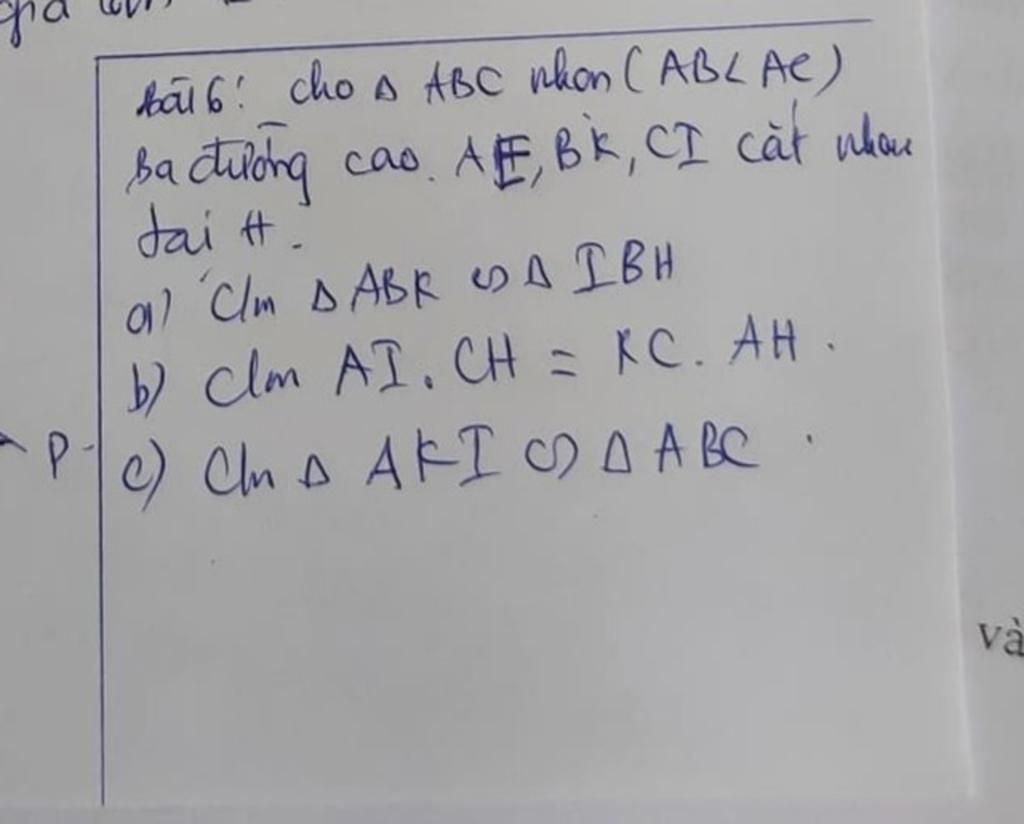 Bài 6: Cho Δ ABC nhọn (AB < AC)
Ba đường cao. AE, BK, CI cắt nhau
tại H.
a) C/m Δ ABK ∽ Δ IBH
b) C/m AI. CH = KC. AH.
P
c) C/m Δ AKI ∽ Δ ABC
và